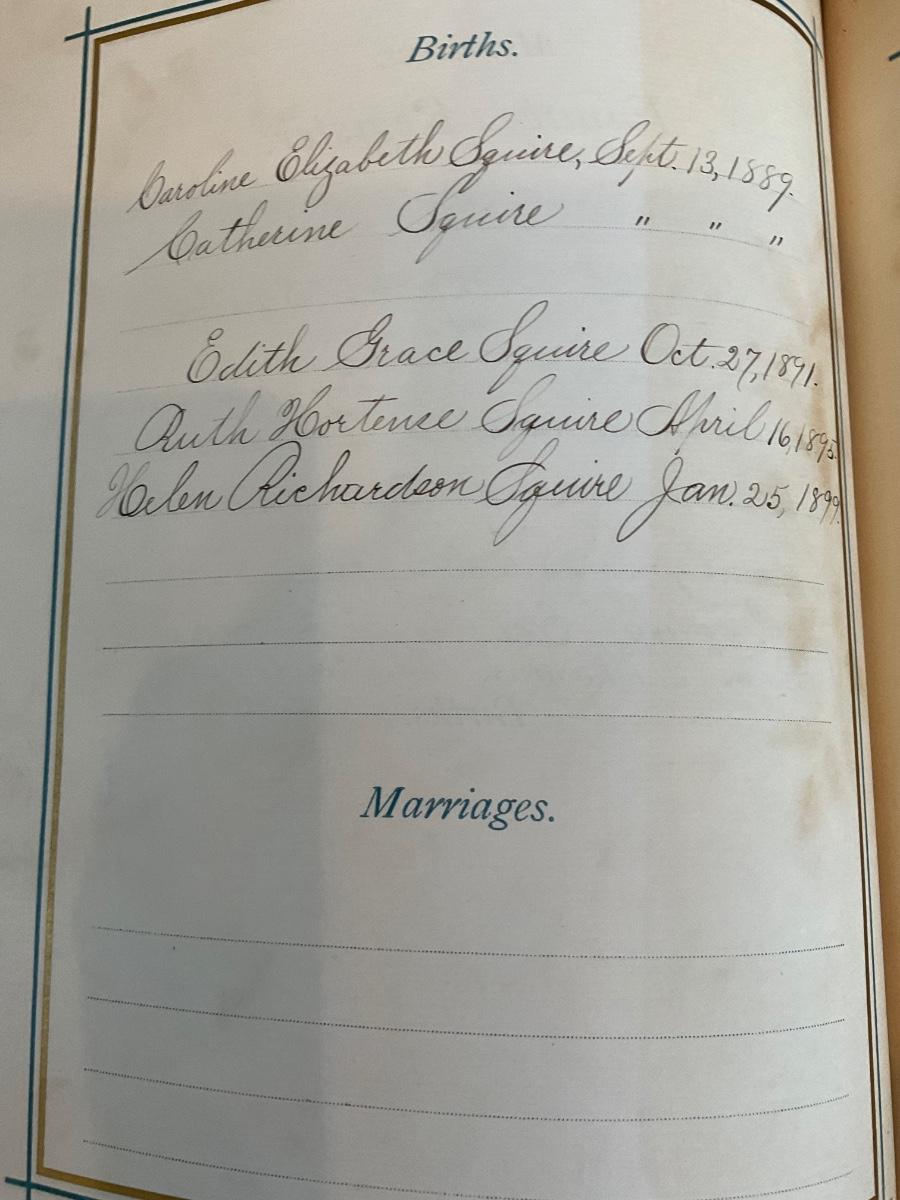 Births.
Caroline Elizabeth Squire, Sept. 13, 1889.
Catherine Squire " " "
Edith Grace Squire Oct. 27, 1891.
Ruth Hortense Squire April 16, 1895.
Helen Richardson Squire Jan. 25, 1899.
Marriages.